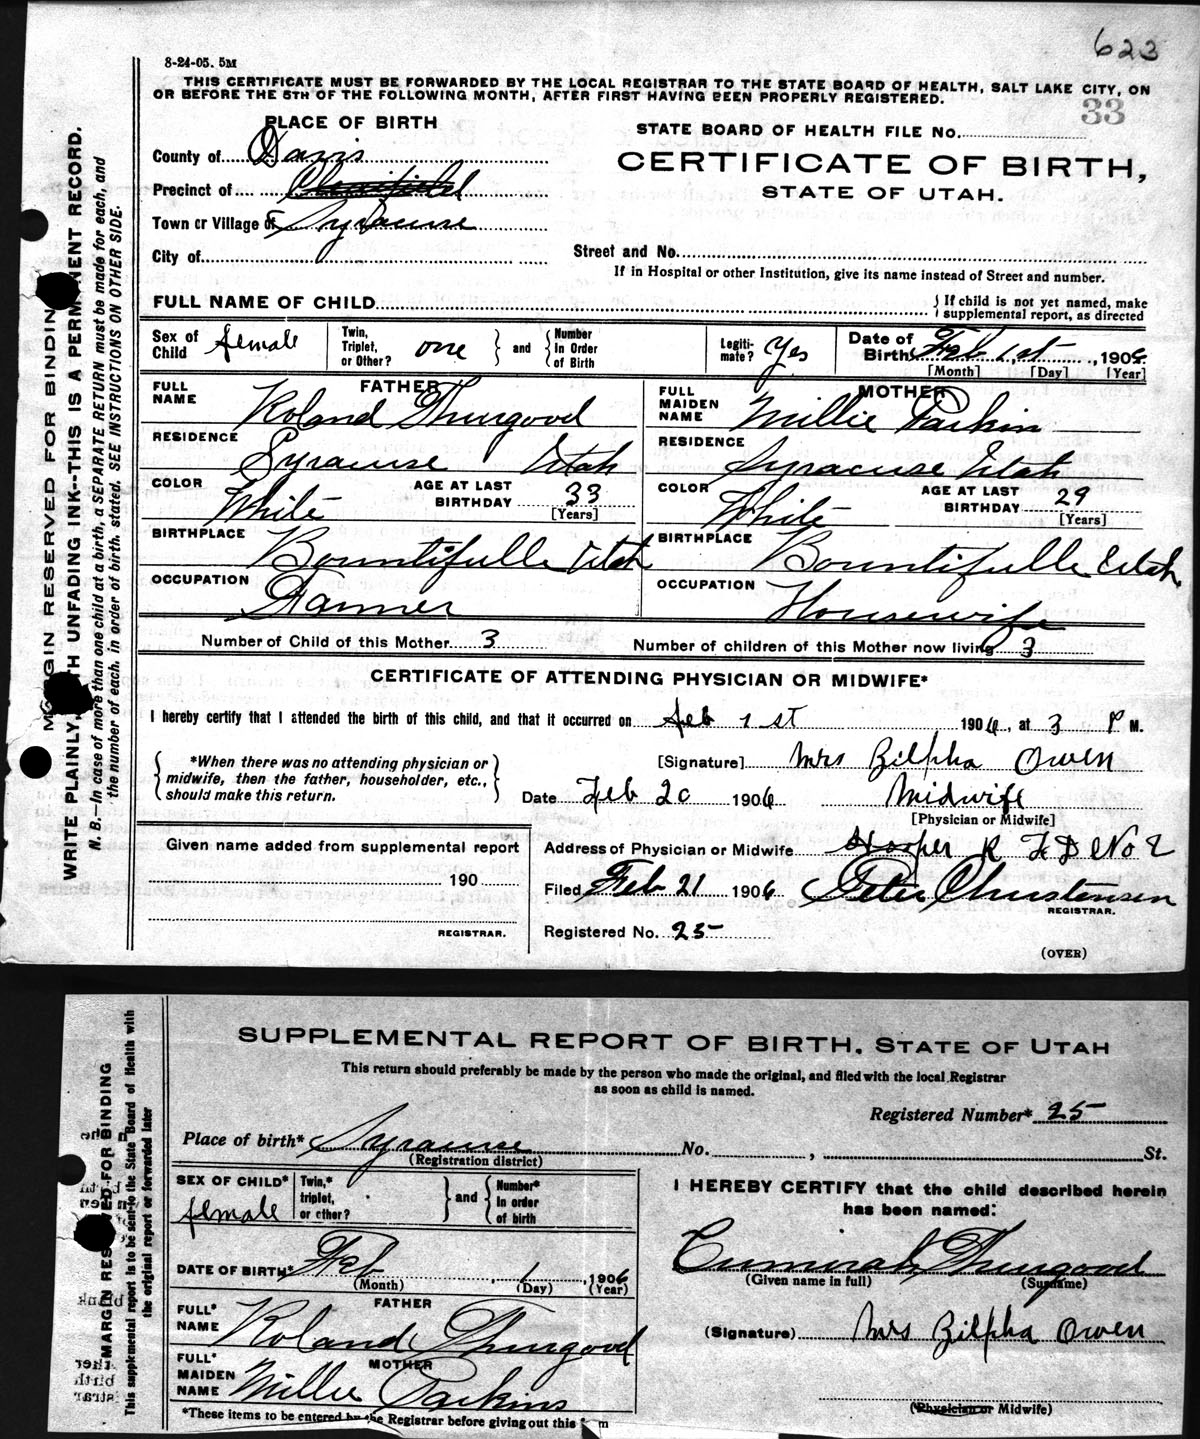 623
8-24-05. 5M
THIS CERTIFICATE MUST BE FORWARDED BY THE LOCAL REGISTRAR TO THE STATE BOARD OF HEALTH, SALT LAKE CITY, ON
OR BEFORE THE 5TH OF THE FOLLOWING MONTH, AFTER FIRST HAVING BEEN PROPERLY REGISTERED.
33
PLACE OF BIRTH
STATE BOARD OF HEALTH FILE No.
County of Davis
CERTIFICATE OF BIRTH,
Precinct of
STATE OF UTAH.
Town or Village of Syracuse
City of
Street and No.
If in Hospital or other Institution, give its name instead of Street and number.
FULL NAME OF CHILD
} If child is not yet named, make
} supplemental report, as directed
Sex of Child female
Twin, Triplet, or Other? one } and { Number In Order of Birth
Legitimate? yes
Date of Birth Feb 1st, 1906
[Month] [Day] [Year]
FATHER
FULL NAME Roland Thurgood
RESIDENCE Syracuse Utah
COLOR White AGE AT LAST BIRTHDAY 33
[Years]
BIRTHPLACE Bountifulle Utah
OCCUPATION Farmer
MOTHER
FULL MAIDEN NAME Millie Parkin
RESIDENCE Syracuse Utah
COLOR White AGE AT LAST BIRTHDAY 29
[Years]
BIRTHPLACE Bountifulle Utah
OCCUPATION Housewife
Number of Child of this Mother 3 Number of children of this Mother now living 3
CERTIFICATE OF ATTENDING PHYSICIAN OR MIDWIFE*
I hereby certify that I attended the birth of this child, and that it occurred on Feb 1st 1906, at 3 P M.
*When there was no attending physician or
midwife, then the father, householder, etc.,
should make this return.
[Signature] Mrs Zilpha Owen
Date Feb 20 1906 Midwife
[Physician or Midwife]
Given name added from supplemental report
190
REGISTRAR.
Address of Physician or Midwife Hooper R F D No 2
Filed Feb 21 1906 Peter Christensen
REGISTRAR.
Registered No. 25
(OVER)
MARGIN RESERVED FOR BINDING
WRITE PLAINLY, WITH UNFADING INK--THIS IS A PERMANENT RECORD.
N. B.—In case of more than one child at a birth, a SEPARATE RETURN must be made for each, and
the number of each, in order of birth, stated. SEE INSTRUCTIONS ON OTHER SIDE.
SUPPLEMENTAL REPORT OF BIRTH, STATE OF UTAH
This return should preferably be made by the person who made the original, and filed with the local Registrar
as soon as child is named.
Registered Number* 25
Place of birth* Syracuse No. , St.
(Registration district)
SEX OF CHILD* female
Twin,* triplet, or other? } and { Number* In order of birth
DATE OF BIRTH* Feb 1, 1906
(Month) (Day) (Year)
FATHER
FULL* NAME Roland Thurgood
MOTHER
FULL* MAIDEN NAME Millie Parkins
*These items to be entered by the Registrar before giving out this form
I HEREBY CERTIFY that the child described herein
has been named:
Cumirah Thurgood
(Given name in full) (Surname)
(Signature) Mrs Zilpha Owen
(Physician or Midwife)
MARGIN RESERVED FOR BINDING
This supplemental report is to be sent to the State Board of Health with
the original report or forwarded later